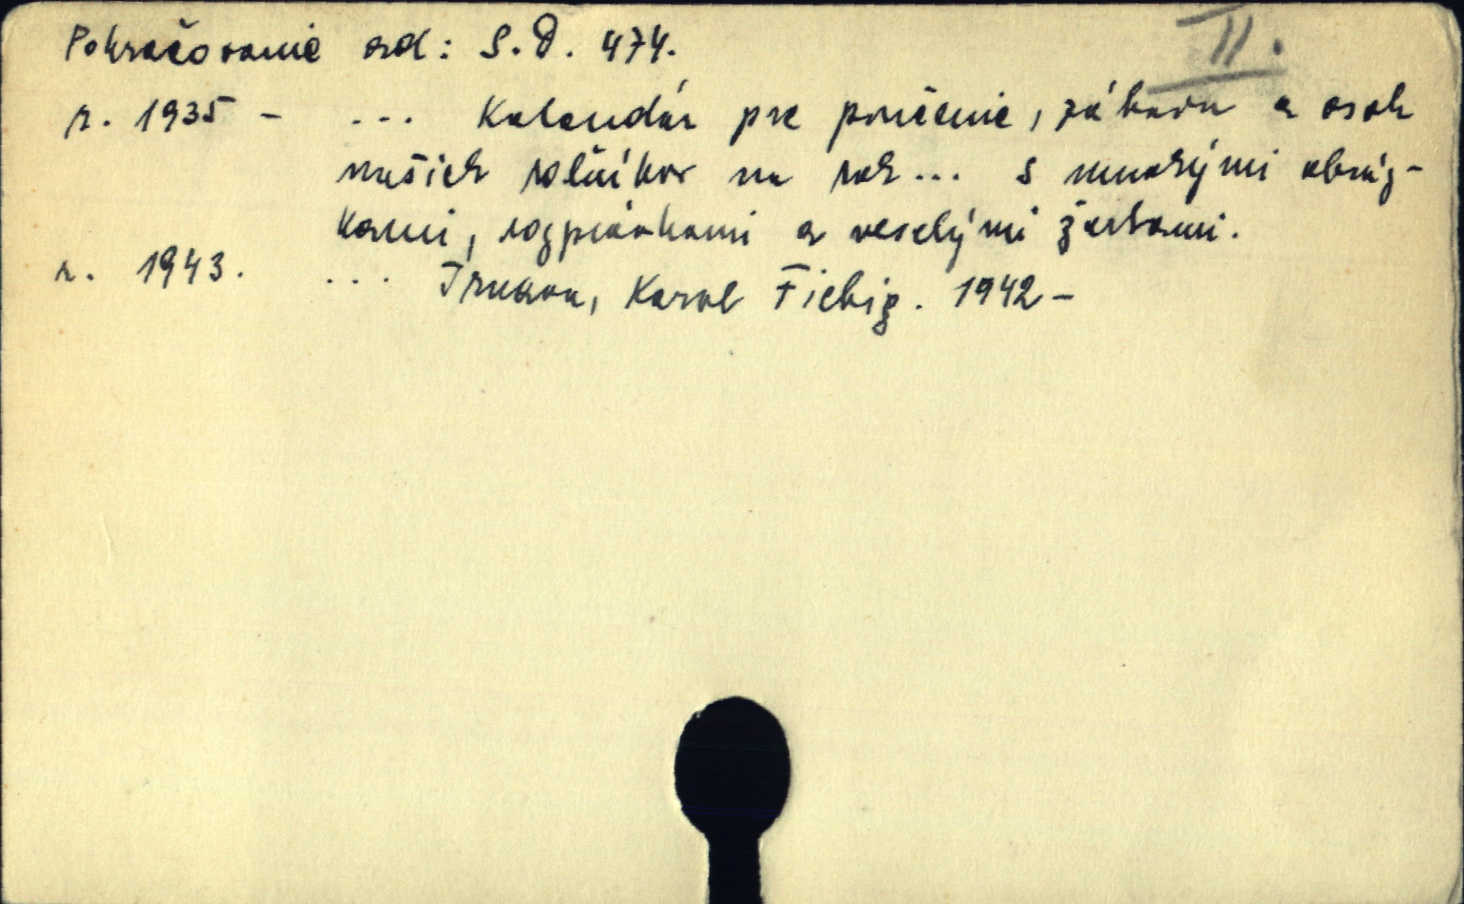 Pokračovanie od: S.D. 474.
II.
r. 1935 - ... Kalendár pre poučenie, zábavu a osoh
našich roľníkov na rok... s mnohými obráz-
kami, rozprávkami a veselými žartami.
r. 1943. ... Trnava, Karol Fiebig. 1942 -